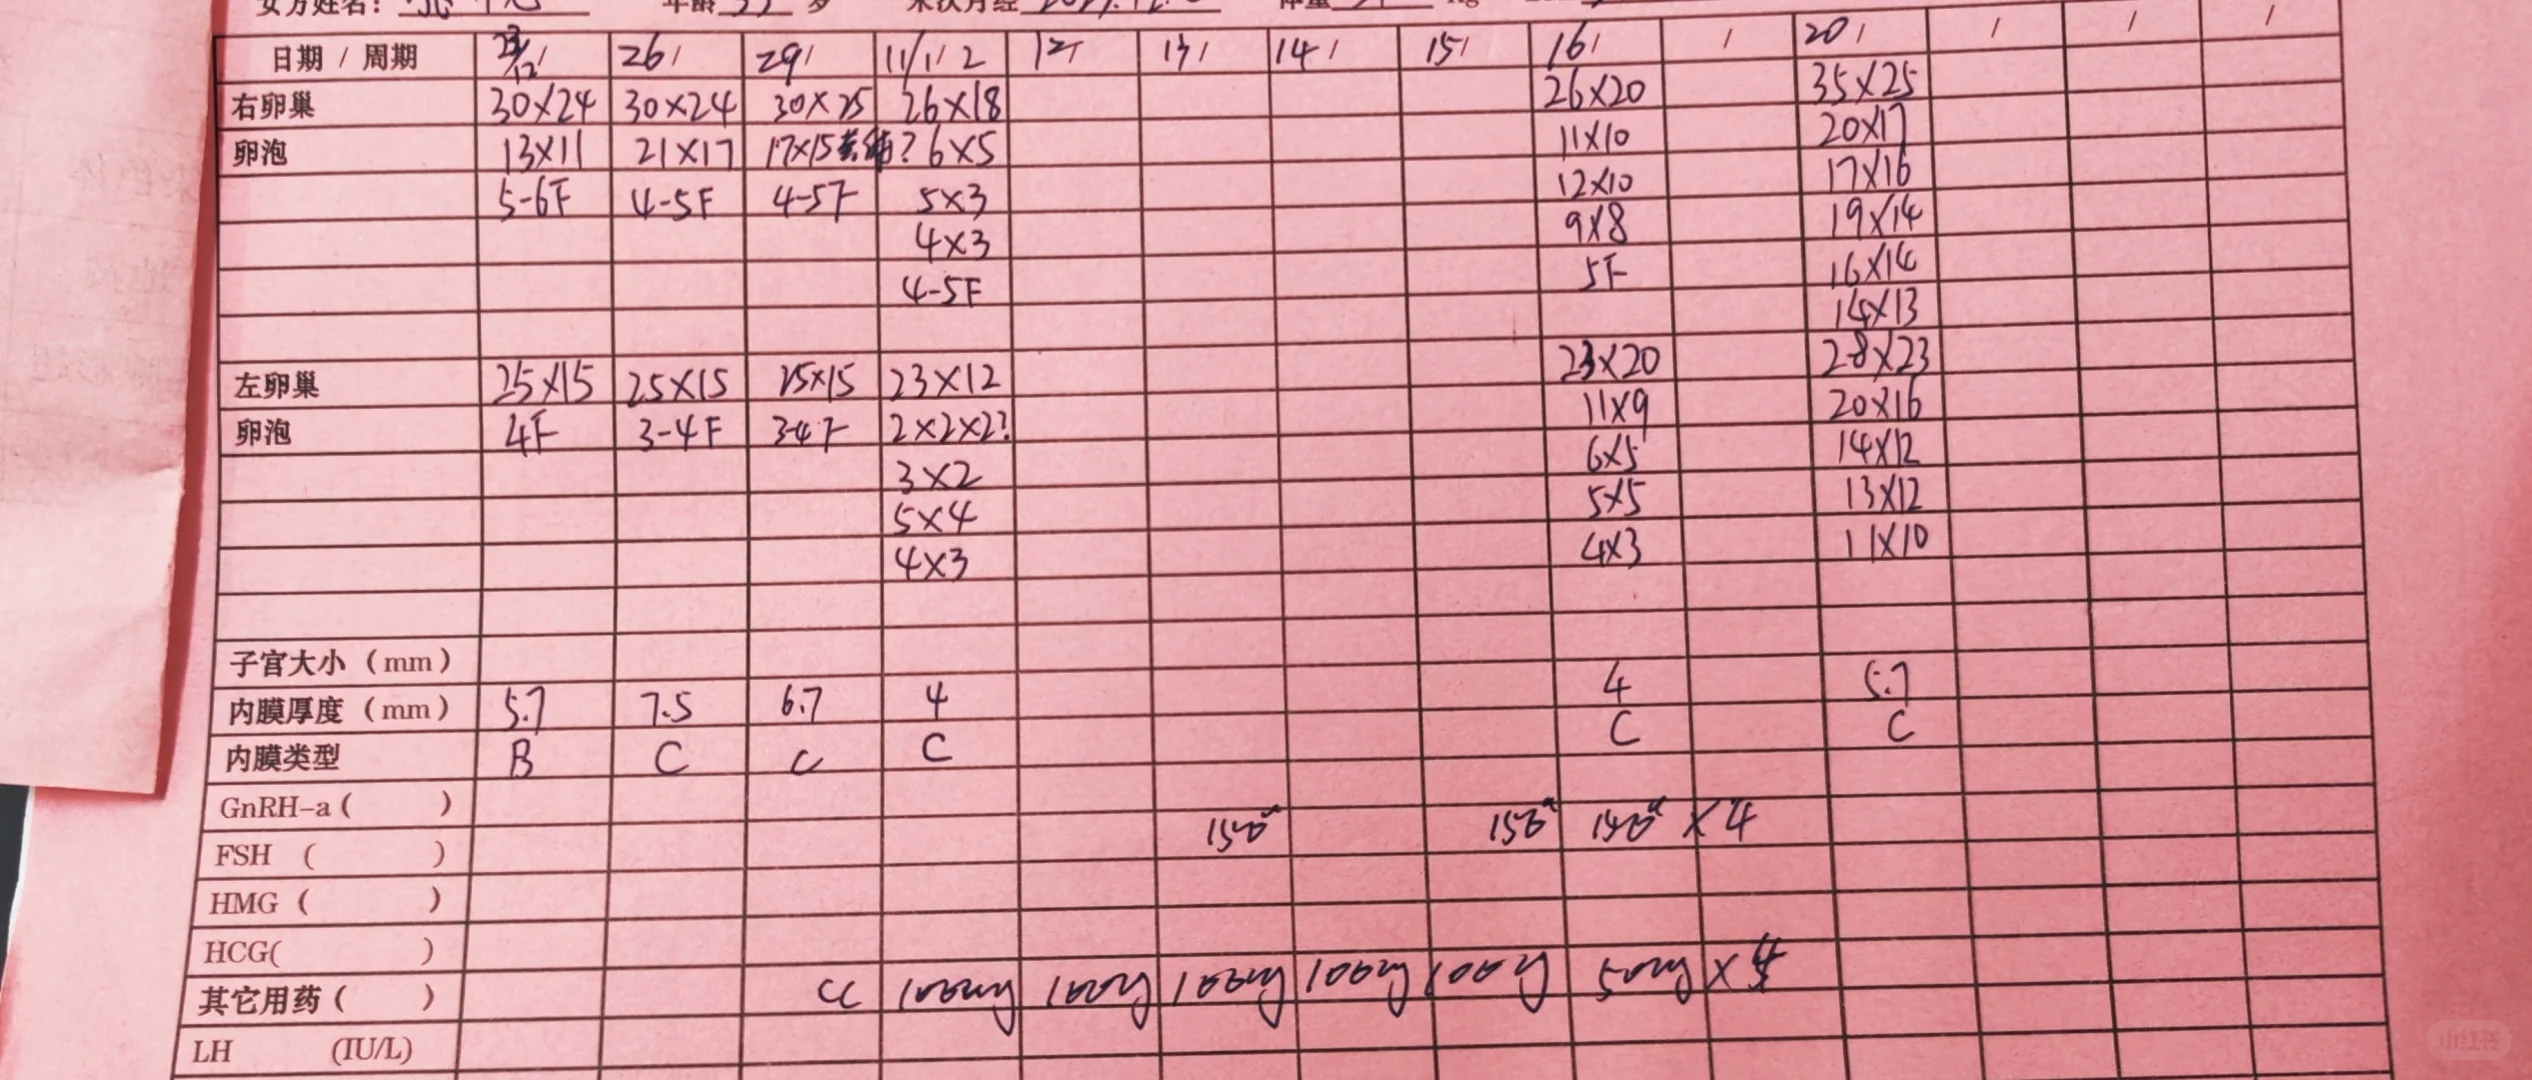 女方姓名： 年龄 岁 末次月经 体重 Kg
日期 / 周期 23/12 / 26 / 29 / 11/1 / 2 12 / 13 / 14 / 15 / 16 / / 20 / / / /
右卵巢 30×24 30×24 30×25 26×18 26×20 35×25
卵泡 13×11 21×17 17×15 ? 6×5 11×10 20×17
5-6F 4-5F 4-5F 5×3 12×10 17×16
4×3 9×8 19×14
4-5F 5F 16×14
14×13
左卵巢 25×15 25×15 25×15 23×12 23×20 28×23
卵泡 4F 3-4F 3-4F 2×2×2? 11×9 20×16
3×2 6×5 14×12
5×4 5×5 13×12
4×3 4×3 11×10
子宫大小（mm）
内膜厚度（mm） 5.7 7.5 6.7 4 4 5.7
内膜类型 B C C C C C
GnRH-a ( )
FSH ( ) 150u 150u 150u × 4
HMG ( )
HCG( )
其它用药 ( ) CC 100mg 100mg 100mg 100mg 100mg 50mg × 4
LH (IU/L)
小红书